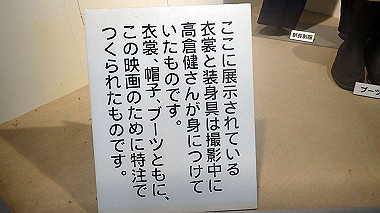 ここに展示されている
衣裳と装身具は撮影中に
高倉健さんが身につけて
いたものです。
衣裳、帽子、ブーツともに、
この映画のために特注で
つくられたものです。
ブーツ